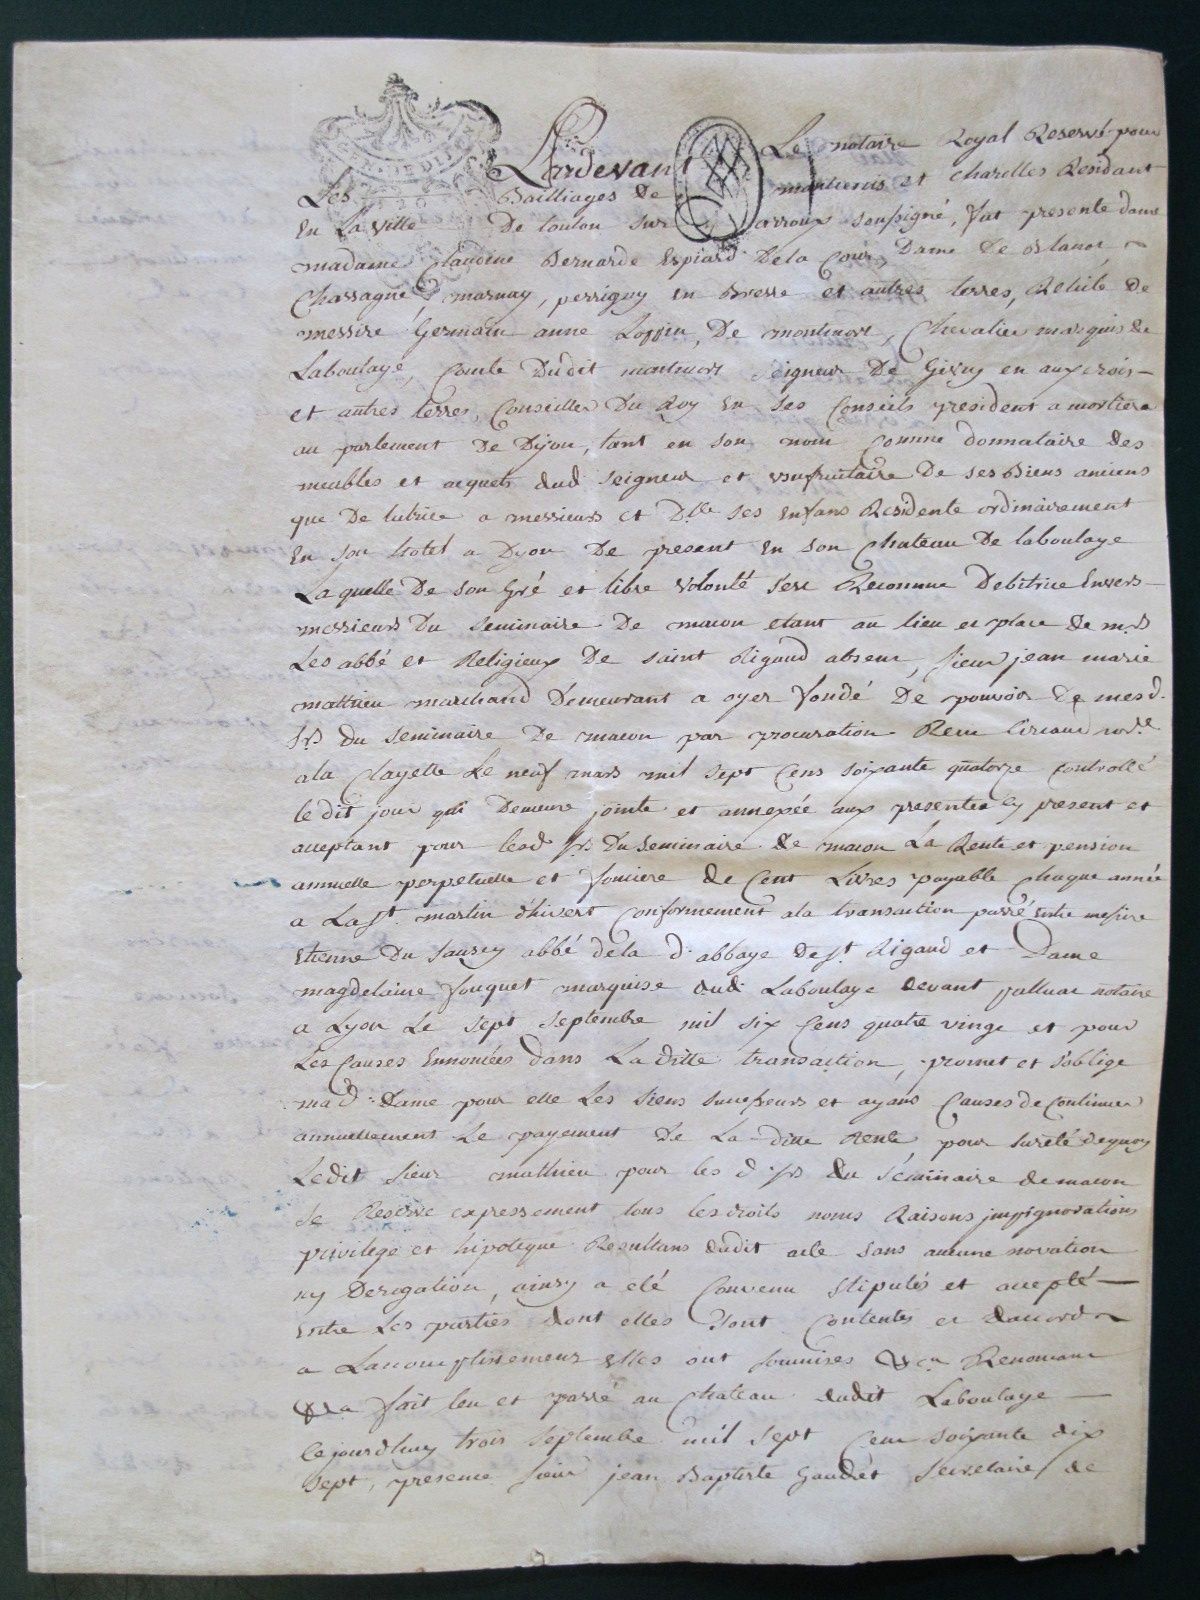 Pardevant Le notaire Royal Reservé pour
Les Bailliages de montcenis et charolles Residant
En La Ville De toulon sur arroux soussigné, fut presente dame
madame Claudine Bernarde Espiard Dela Cour, Dame De
Chassagne marnay, perrigny en Bresse et autres terres, Relicte de
messire Germain anne Loppin, De montmort, Chevalier marquis de
Laboulaye, Comte Dudit montmort Seigneur De Givry en auxerois
et autres terres, Conseiller Du Roy En ses Conseils president a mortiere
au parlement De Dijon, tant en son nom comme donnataire des
meubles et acquets dud seigneur et usufruitaire De ses Biens anciens
que De tutrice a messieurs et Dlle ses Enfans Residente ordinairement
En son hotel a Dijon De present En son Chateau De laboulaye
Laquelle De son Gré et libre Volonté s'est Reconnue Debitrice Envers
messieurs Du seminaire De macon etant au lieu et place de mrs
Les abbé et Religieux De saint Rigaud absens, sieur jean marie
mathieu marchand Demeurant a oyer fondé De pouvoir de mesd.
srs Du seminaire De macon par procuration Recue
ala Clayette Le neuf mars mil sept Cens soixante quatorze controllé
ledit jour qui Demeure jointe et annexée aux presentes cy present et
acceptant pour lesd srs Du seminaire de macon La Rente et pension
annuelle perpetuelle et fonciere de Cent Livres payable Chaque année
a La st martin d'hivert Conformement ala transaction passé Entre messire
Etienne Du sausey abbé dela d. abbaye De st Rigaud et Dame
magdelaine fouquet marquise dud. Laboulaye devant palluat notaire
a Lyon Le sept septembre mil six Cens quatre vingt et pour
Les Causes Ennoncées dans La ditte transaction, promet et s'oblige
mad. Dame pour elle Les siens successeurs et ayans Causes de Continuer
annuellement Le payement De La ditte Rente, pour sureté dequoy
Ledit sieur mathieu pour les d. srs du seminaire de macon
se Reserve expressement tous les droits noms Raisons impignorations
privilege et hipoteque Resultans dudit acte sans aucune novation
ny Derogation, ainsy a eté Convenu stipulés et accepté
Entre Les parties dont elles sont Contentes et daccord
a Lacomplissement Elles ont soumises &ca Renoncant
&a fait leu et passé au Chateau dudit Laboulaye
Cejourdhuy trois septembre mil sept Cent soixante dix
sept, presence sieur jean Baptiste Gaudet secretaire de